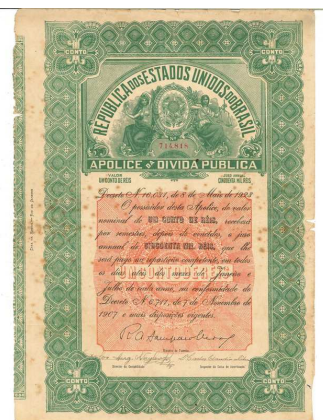 1 CONTO 1
1 CONTO 1
REPUBLICA DOS ESTADOS UNIDOS DO BRASIL
APOLICE DA DIVIDA PUBLICA
VALOR
UM CONTO DE REIS
JURO ANNUAL
CINCOENTA MIL REIS
Decreto Nº de 8 de Maio de 1923
O possuidor desta Apolice, do valor
nominal de UM CONTO DE RÉIS, receberá
por semestres, depois de vencidos, o juro
annual de CINCOENTA MIL RÉIS, que lhe
será pago na repartição competente, em todos
os dias uteis dos mezes de Janeiro e
Julho de cada anno, na conformidade do
Decreto Nº 6.711, de 7 de Novembro de
1907 e mais disposições vigentes.
1 CONTO 1
1 CONTO 1